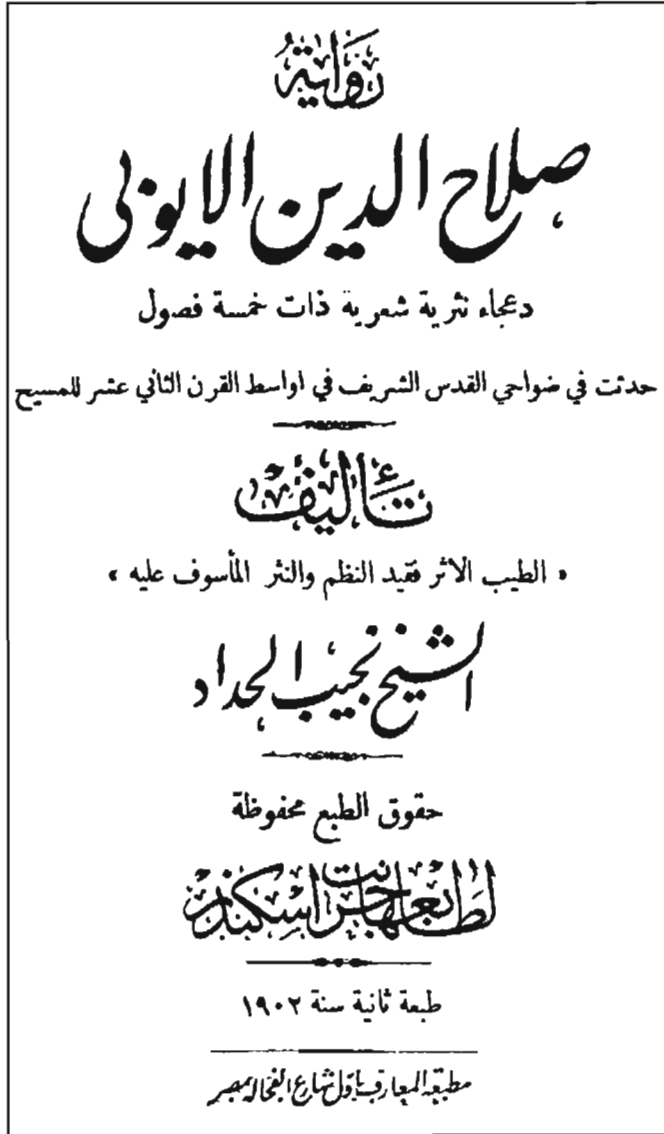 رواية
صلاح الدين الايوبى
دعجاء نثرية شعرية ذات خمسة فصول
حدثت في ضواحي القدس الشريف في اواسط القرن الثاني عشر للمسيح
تأليف
« الطيب الاثر فقيد النظم والنثر المأسوف عليه »
الشيخ نجيب الحداد
حقوق الطبع محفوظة
لطابعها جرجس اسكندر
طبعة ثانية سنة ١٩٠٢
مطبعة المعارف باول شارع الفجالة بمصر